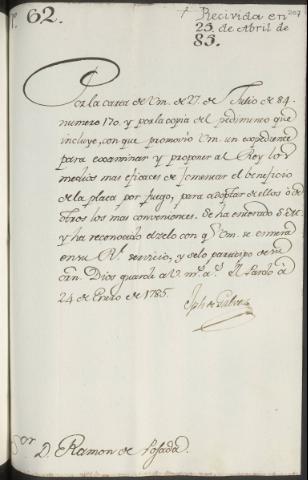 N. 62.
† Recivida en
25. de Abril de
85.
207
Por la carta de Vm. de 27. de Julio de 84.
numero 170. y por la copia del pedimento que
incluye, con que promovio Vm. un expediente
para examinar y proponer al Rey los
medios mas eficaces de fomentar el beneficio
de la plata por fuego, para adoptar de ellos ò de
otros los mas convenientes. Se ha enterado S. M.
y ha reconocido el zelo con q.e Vm. se esmera
en su R.l servicio, y selo participo de su
Dios guarde à V. m.s a.s El Pardo à
24 de Enero de 1785.
Jph de Galvez
S.or D. Ramon de Posada.